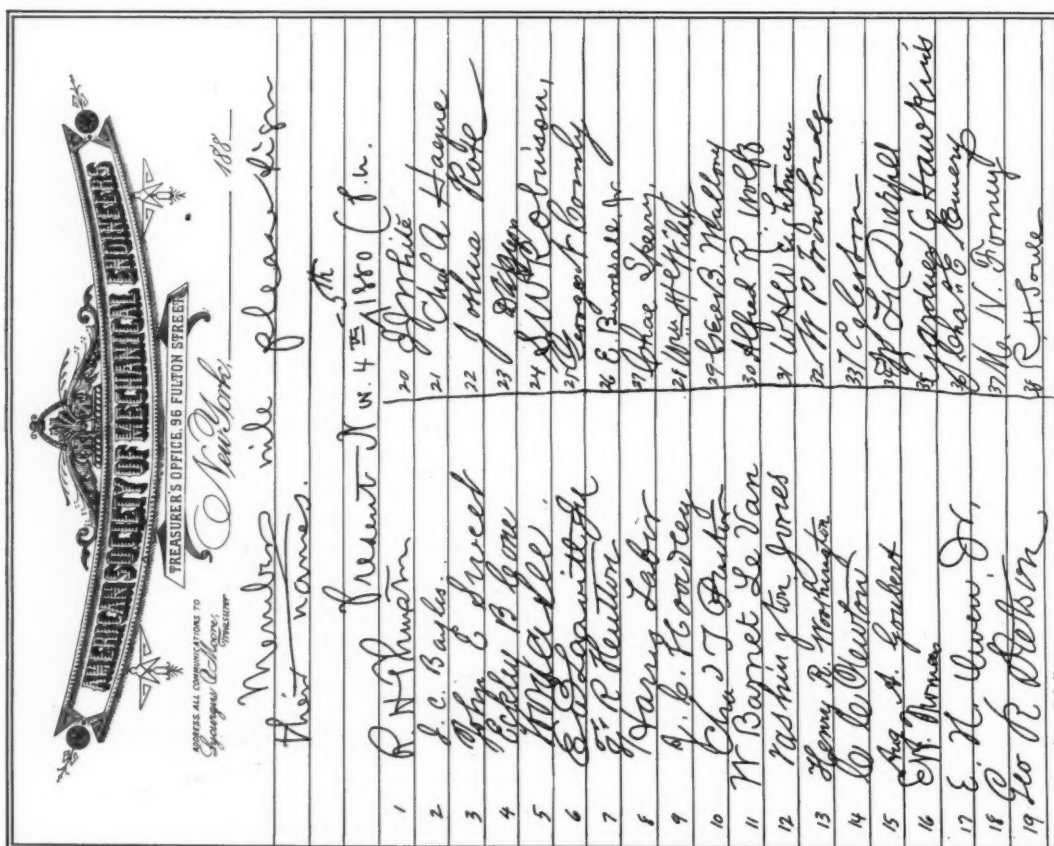 AMERICAN SOCIETY OF MECHANICAL ENGINEERS
TREASURER'S OFFICE, 96 FULTON STREET
ADDRESS ALL COMMUNICATIONS TO
Lycurgus B. Moore,
TREASURER
New York, 188
Members will please sign
their names.
Present Nov. 4th 5th 1880 (p.m.
1 R. H. Thurston
2 J. C. Bayles.
3 John E Sweet
4 Eckley B Coxe
5
6
7
8 Harris Tabor
9 J. C. Hoadley
10 Chas T Porter
11 W Barnet Le Van
12 Washington Jones
13 Henry R. Worthington
14 C C Newton
15 Aug. A. Goubert
16 E. W. Thomas
17 E. H. Owen Jr.
18
19 Geo R Stetson
20 J J White
21 Chas A Hague
22 Joshua Rose
23
24 S W Robinson,
25 George
26 E. Burnside Jr
27 Chas Sperry
28 Wm H
29 Geo B. Mallory
30 Alfred R. Wolff
31
32 W P Trowbridge
33 T Egleston
34
35
36 Chas E Emery
37 M. N. Forney
38 R. H. Soule